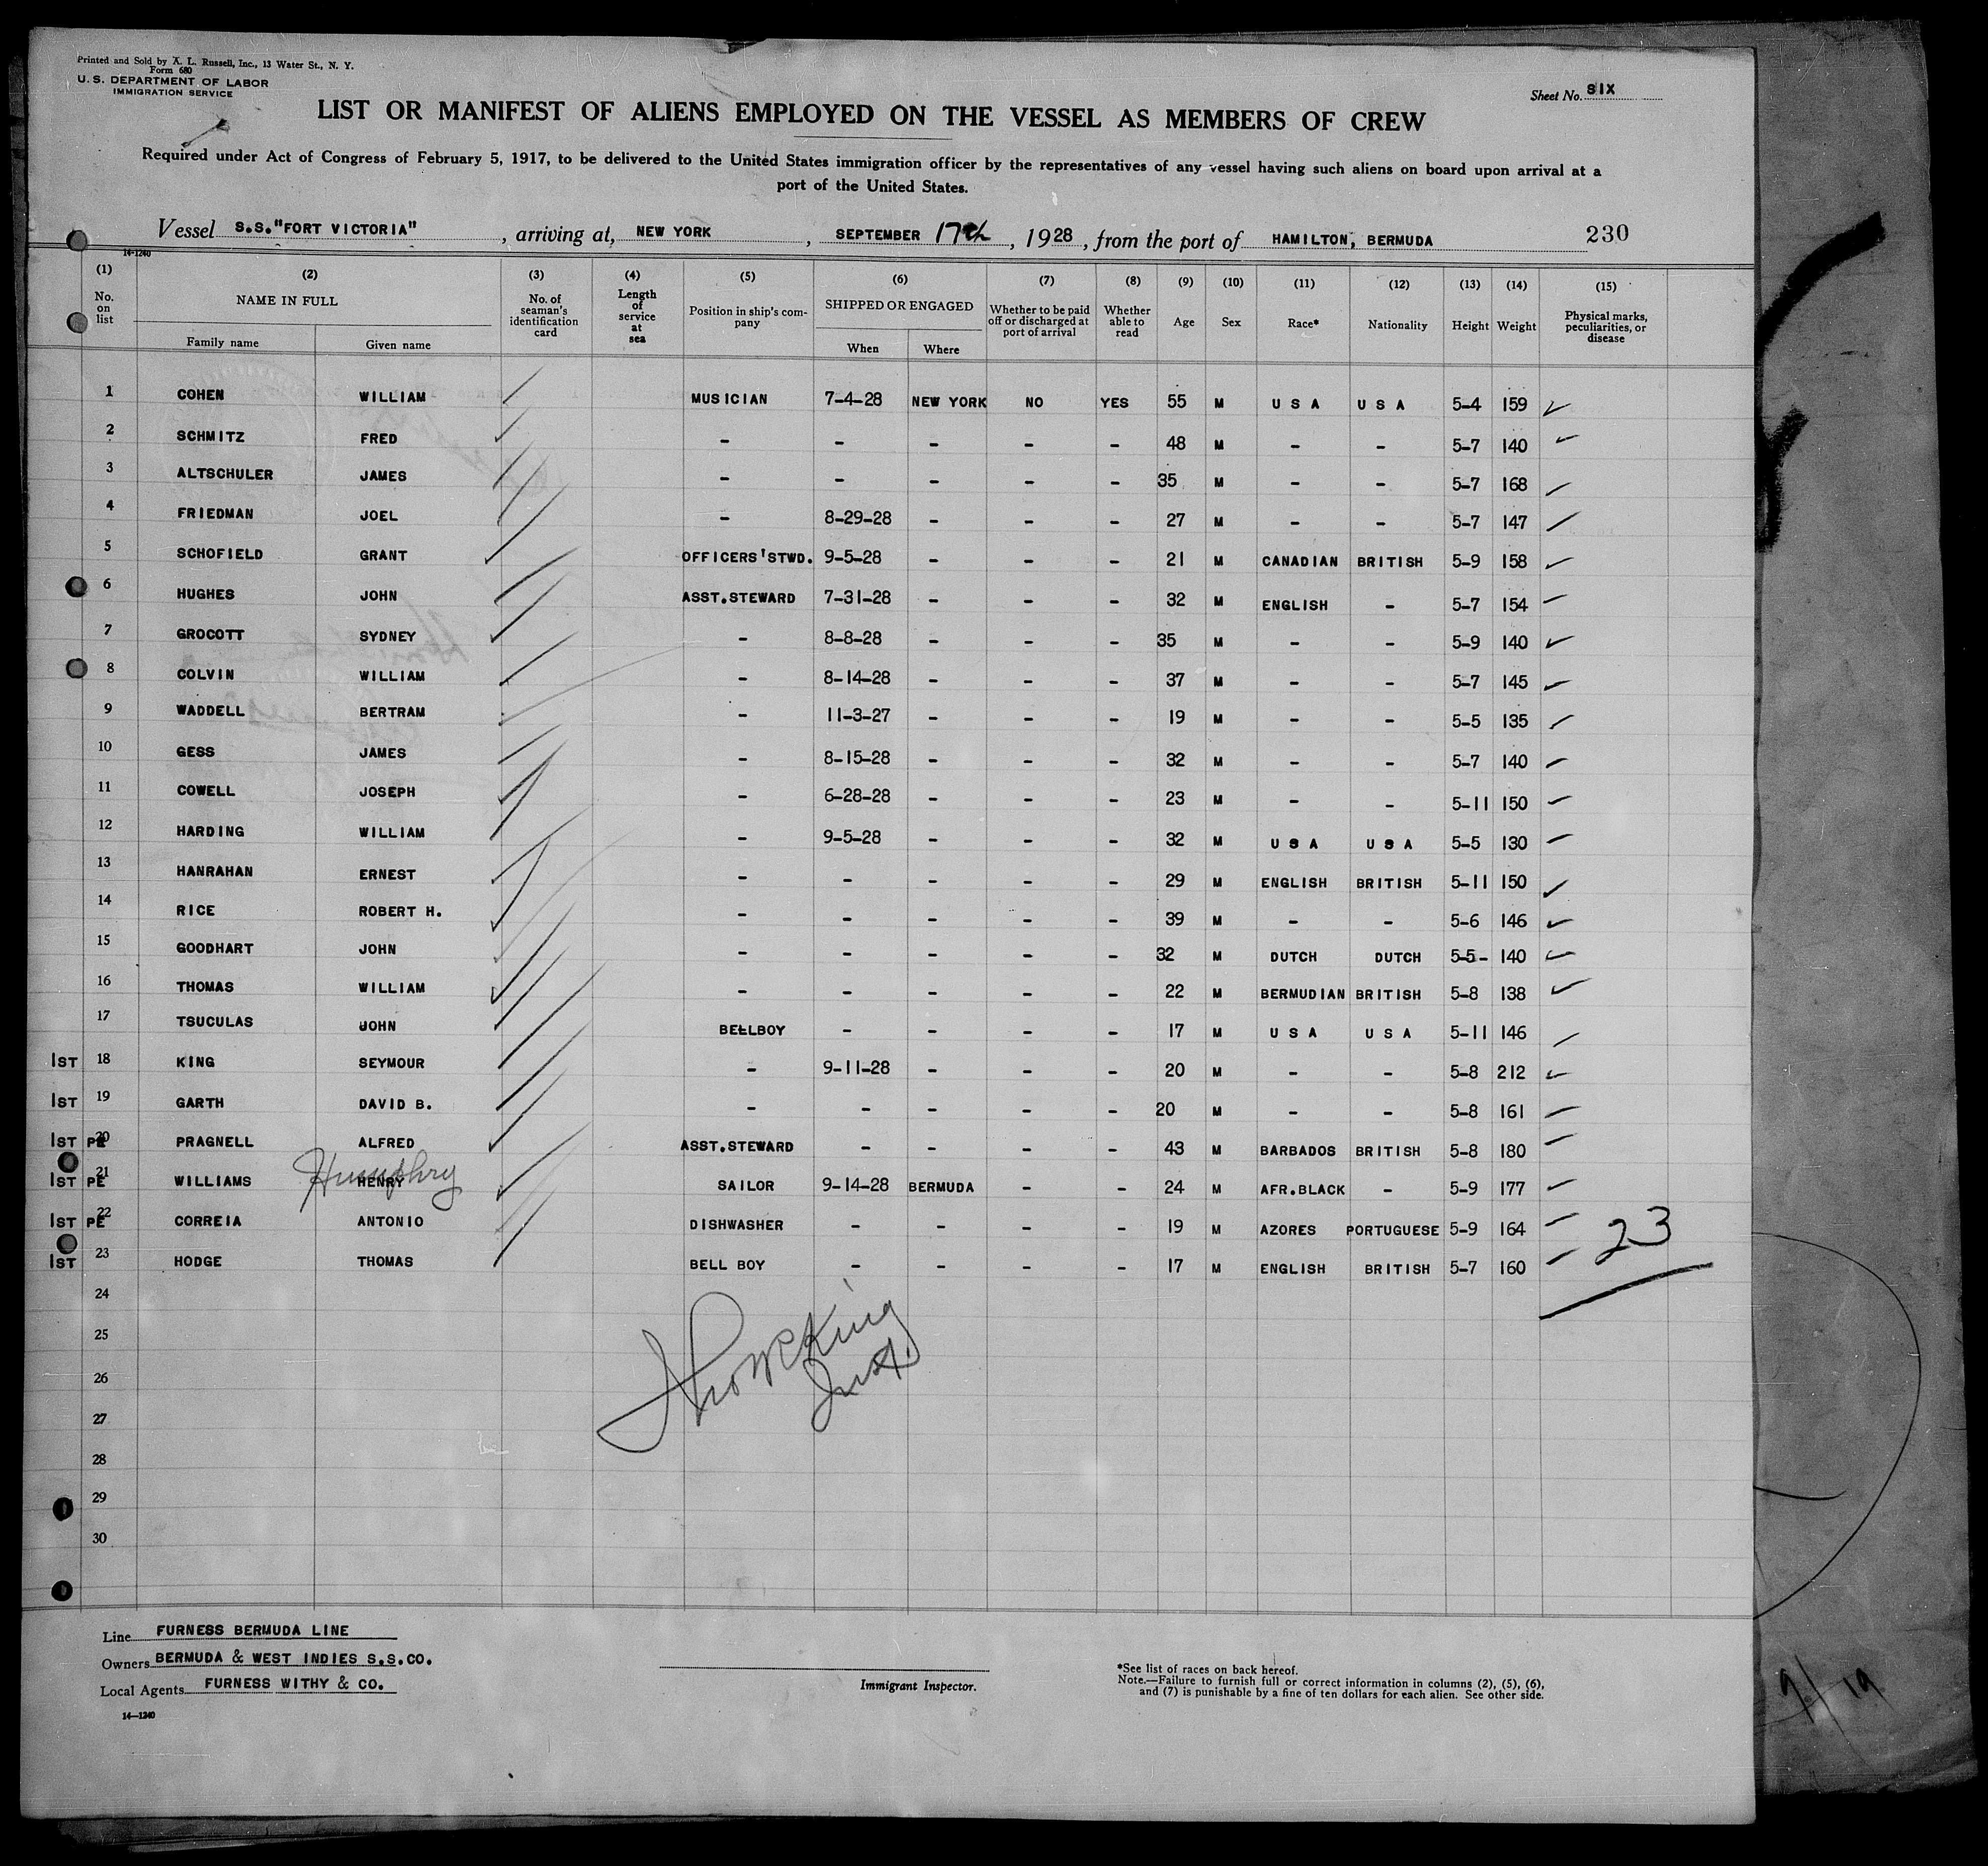 Printed and Sold by A. L. Russell, Inc., 13 Water St., N. Y.
Form 680
U. S. DEPARTMENT OF LABOR
IMMIGRATION SERVICE
Sheet No. SIX
LIST OR MANIFEST OF ALIENS EMPLOYED ON THE VESSEL AS MEMBERS OF CREW
Required under Act of Congress of February 5, 1917, to be delivered to the United States immigration officer by the representatives of any vessel having such aliens on board upon arrival at a
port of the United States.
Vessel S.S."FORT VICTORIA", arriving at, NEW YORK, SEPTEMBER 17th, 1928, from the port of HAMILTON, BERMUDA 230
14-1240
(1) (2) (3) (4) (5) (6) (7) (8) (9) (10) (11) (12) (13) (14) (15)
No. on list NAME IN FULL Family name Given name No. of seaman's identification card Length of service at sea Position in ship's company SHIPPED OR ENGAGED When Where Whether to be paid off or discharged at port of arrival Whether able to read Age Sex Race* Nationality Height Weight Physical marks, peculiarities, or disease
1 COHEN WILLIAM MUSICIAN 7-4-28 NEW YORK NO YES 55 M U S A U S A 5-4 159
2 SCHMITZ FRED - - - - - 48 M - - 5-7 140
3 ALTSCHULER JAMES - - - - - 35 M - - 5-7 168
4 FRIEDMAN JOEL - 8-29-28 - - - 27 M - - 5-7 147
5 SCHOFIELD GRANT OFFICERS'STWD. 9-5-28 - - - 21 M CANADIAN BRITISH 5-9 158
6 HUGHES JOHN ASST.STEWARD 7-31-28 - - - 32 M ENGLISH - 5-7 154
7 GROCOTT SYDNEY - 8-8-28 - - - 35 M - - 5-9 140
8 COLVIN WILLIAM - 8-14-28 - - - 37 M - - 5-7 145
9 WADDELL BERTRAM - 11-3-27 - - - 19 M - - 5-5 135
10 GESS JAMES - 8-15-28 - - - 32 M - - 5-7 140
11 COWELL JOSEPH - 6-28-28 - - - 23 M - - 5-11 150
12 HARDING WILLIAM - 9-5-28 - - - 32 M U S A U S A 5-5 130
13 HANRAHAN ERNEST - - - - - 29 M ENGLISH BRITISH 5-11 150
14 RICE ROBERT H. - - - - - 39 M - - 5-6 146
15 GOODHART JOHN - - - - - 32 M DUTCH DUTCH 5-5- 140
16 THOMAS WILLIAM - - - - - 22 M BERMUDIAN BRITISH 5-8 138
17 TSUCULAS JOHN BELLBOY - - - - 17 M U S A U S A 5-11 146
1ST 18 KING SEYMOUR - 9-11-28 - - - 20 M - - 5-8 212
1ST 19 GARTH DAVID B. - - - - - 20 M - - 5-8 161
1ST PE 20 PRAGNELL ALFRED ASST.STEWARD - - - - 43 M BARBADOS BRITISH 5-8 180
1ST PE 21 WILLIAMS HENRY Humphry SAILOR 9-14-28 BERMUDA - - 24 M AFR.BLACK - 5-9 177
1ST PE 22 CORREIA ANTONIO DISHWASHER - - - - 19 M AZORES PORTUGUESE 5-9 164
1ST 23 HODGE THOMAS BELL BOY - - - - 17 M ENGLISH BRITISH 5-7 160
23
24
25
26
27
28
29
30
Line FURNESS BERMUDA LINE
Owners BERMUDA & WEST INDIES S.S.CO.
Local Agents FURNESS WITHY & CO.
14-1240
Immigrant Inspector.
*See list of races on back hereof.
Note.—Failure to furnish full or correct information in columns (2), (5), (6),
and (7) is punishable by a fine of ten dollars for each alien. See other side.
9/19